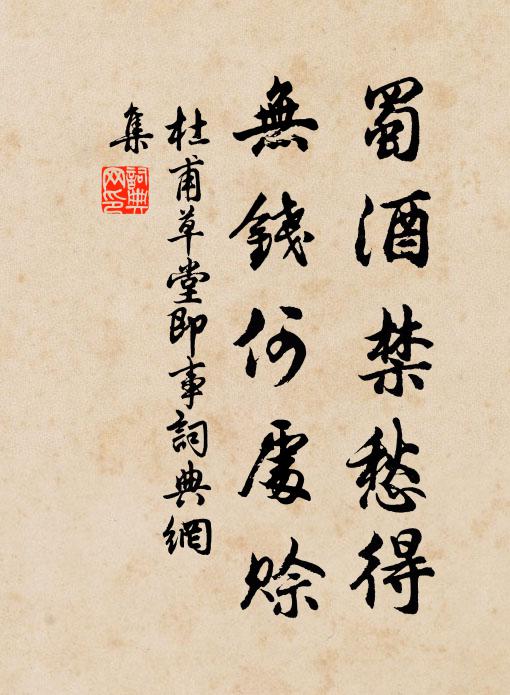 蜀酒禁愁得
無錢何處賒
杜甫草堂即事詞典網
集
詞典網印